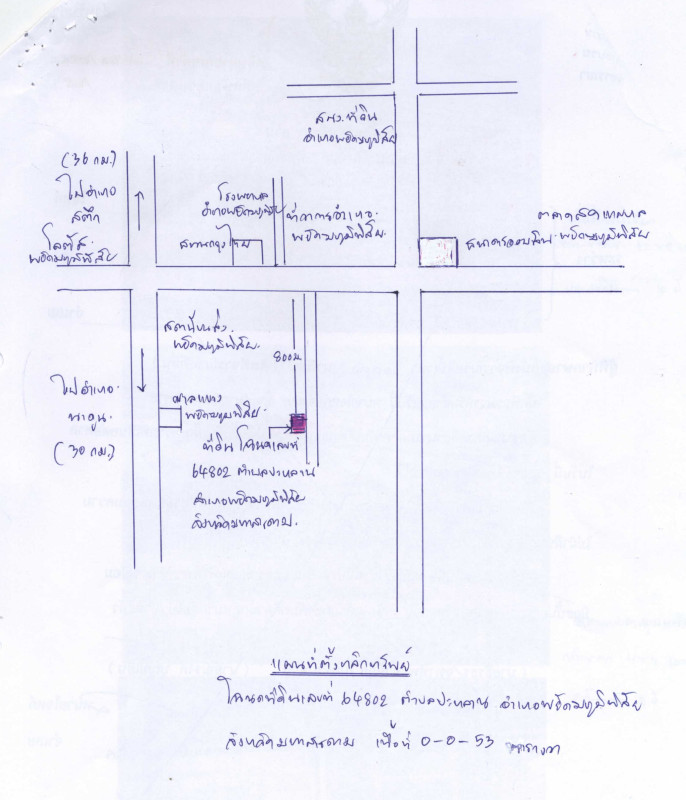 สนง.ที่ดิน
อำเภอพยัคฆภูมิพิสัย
(36 กม.)
ไปอำเภอ
สตึก
โลตัส
พยัคฆภูมิพิสัย
โรงพยาบาล
อำเภอพยัคฆภูมิพิสัย
ที่ว่าการอำเภอ
พยัคฆภูมิพิสัย
ธนาคารกรุงไทย
ตลาดสดเทศบาล
ธนาคารออมสิน พยัคฆภูมิพิสัย
สถานีขนส่ง
พยัคฆภูมิพิสัย
800ม
ไปอำเภอ
นาดูน
(30 กม.)
ศาลแขวง
พยัคฆภูมิพิสัย
ที่ดิน โฉนดเลขที่
64802 ตำบลปะหลาน
อำเภอพยัคฆภูมิพิสัย
จังหวัดมหาสารคาม
แผนที่ตั้งหลักทรัพย์
โฉนดที่ดินเลขที่ 64802 ตำบลปะหลาน อำเภอพยัคฆภูมิพิสัย
จังหวัดมหาสารคาม เนื้อที่ 0-0-53 ตารางวา